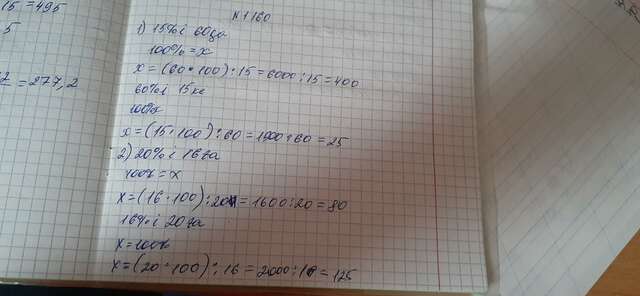 15 = 495
5
= 277,2
№1160
1) 15% і 60га
100% = х
х = (60 • 100) : 15 = 6000 : 15 = 400
60% і 15кг
100%х
х = (15 • 100) : 60 = 1500 : 60 = 25
2) 20% і 16га
100% = х
х = (16 • 100) : 20 = 1600 : 20 = 80
16% і 20га
х = 100%
х = (20 • 100) : 16 = 2000 : 16 = 125